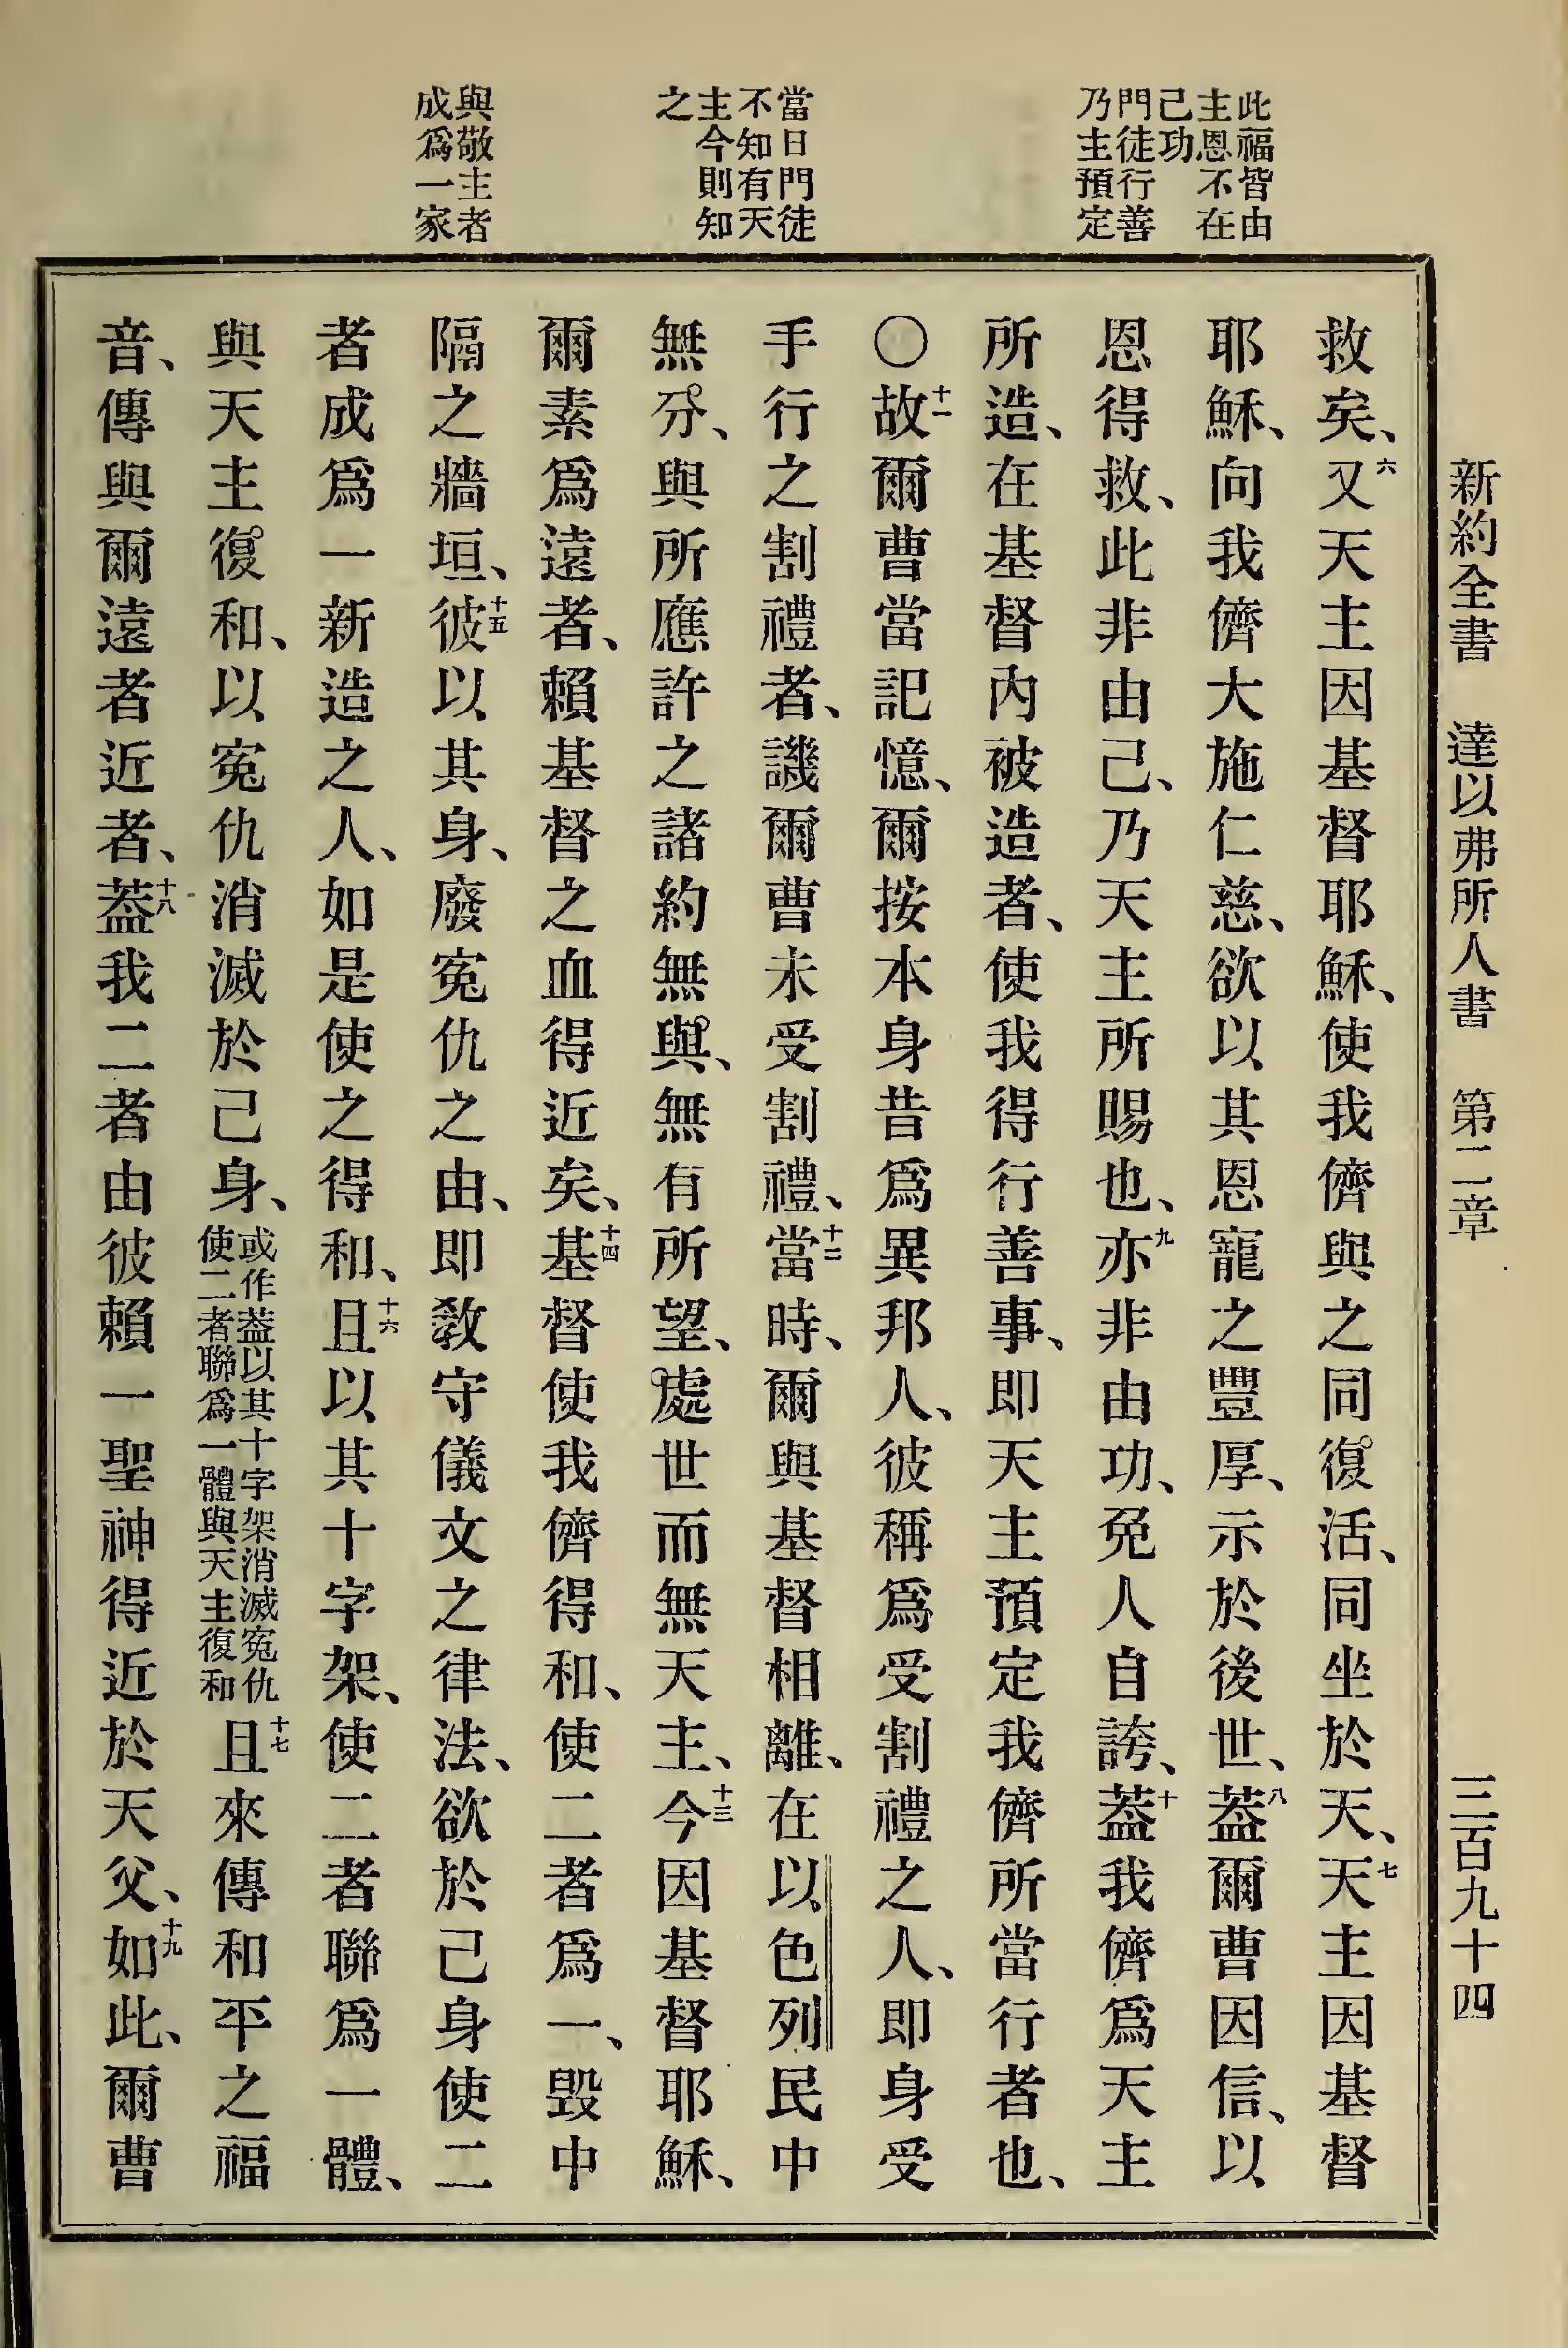 新約全書 達以弗所人書 第二章 三百九十四
此福皆由
主恩不在
己功
門徒行善
乃主預定
當日門徒
不知有天
主今則知
之
與敬主者
成爲一家
救矣、六又天主因基督耶穌、使我儕與之同復活、同坐於天、七天主因基督
耶穌、向我儕大施仁慈、欲以其恩寵之豐厚、示於後世、八葢爾曹因信、以
恩得救、此非由己、乃天主所賜也、九亦非由功、免人自誇、十葢我儕爲天主
所造、在基督內被造者、使我得行善事、即天主預定我儕所當行者也、
〇十一故爾曹當記憶、爾按本身昔爲異邦人、彼稱爲受割禮之人、即身受
手行之割禮者、譏爾曹未受割禮、十二當時、爾與基督相離、在以色列民中
無分、與所應許之諸約無與、無有所望、處世而無天主、十三今因基督耶穌、
爾素爲遠者、賴基督之血得近矣、十四基督使我儕得和、使二者爲一、毀中
隔之牆垣、十五彼以其身、廢寃仇之由、即教守儀文之律法、欲於己身使二
者成爲一新造之人、如是使之得和、十六且以其十字架、使二者聯爲一體、
與天主復和、以寃仇消滅於己身、或作葢以其十字架消滅寃仇使二者聯爲一體與天主復和十七且來傳和平之福
音、傳與爾遠者近者、十八葢我二者由彼賴一聖神得近於天父、十九如此、爾曹